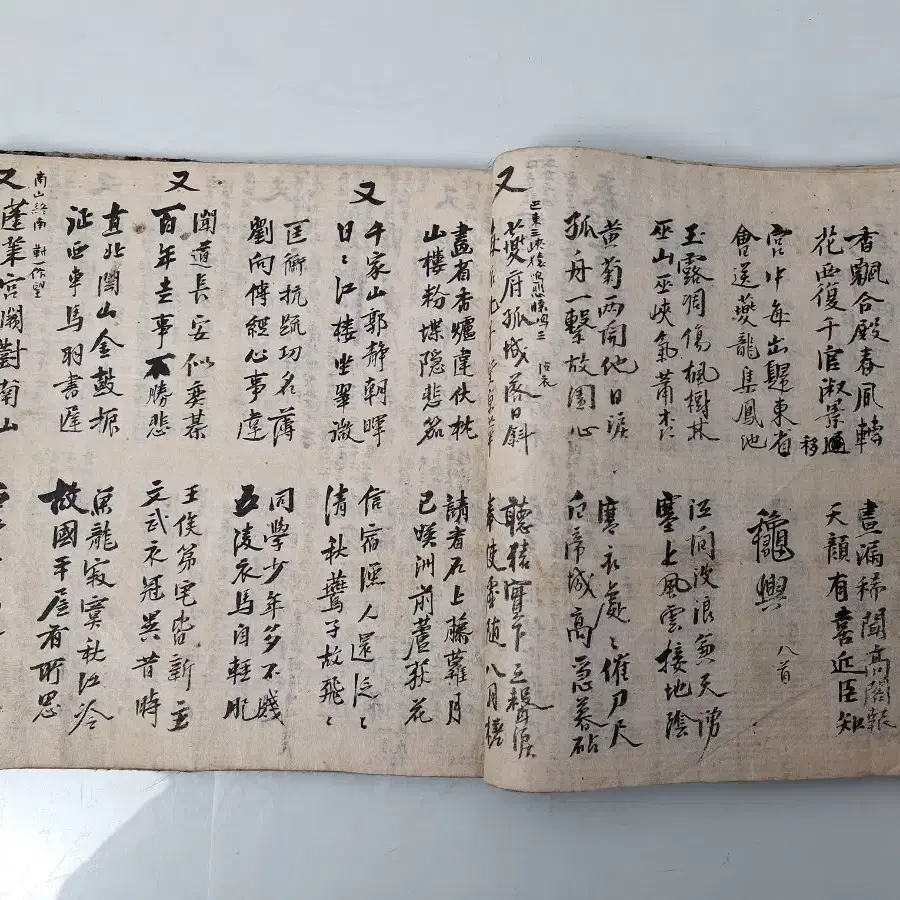 香飄合殿春風轉
花覆千官淑景移
晝漏稀聞高閣報
天顏有喜近臣知
宮中每出歸東省
會送夔龍集鳳池
秋興 八首
玉露凋傷楓樹林
巫山巫峽氣蕭森
江間波浪兼天湧
塞上風雲接地陰
黃菊兩開他日淚
孤舟一繫故園心
寒衣處〻催刀尺
白帝城高急暮砧
又
巴東三峽猿鳴
夔府孤城落日斜
聽猿實下三聲淚
奉使虛随八月槎
畫省香爐違伏枕
山樓粉堞隱悲笳
請看石上藤蘿月
已暎洲前蘆荻花
又
千家山郭静朝暉
日〻江樓坐翠微
信宿漁人還泛〻
清秋鷰子故飛〻
匡衡抗疏功名薄
劉向傳經心事違
同學少年多不賤
五陵衣馬自輕肥
又
聞道長安似奕棊
百年世事不勝悲
王侯第宅皆新主
文武衣冠異昔時
直北關山金鼓振
征西車馬羽書遲
魚龍寂寞秋江冷
故國平居有所思
又
南山終南
蓬萊宮闕對南山